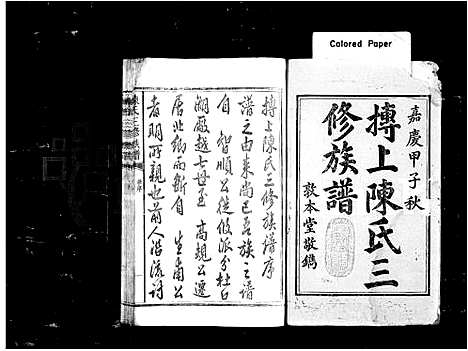 Colored Paper
嘉慶甲子秋
摶上陳氏三
修族譜
敦本堂敬鐫
摶上陳氏三修族譜序
譜之由来尚已吾族之譜
自 智順公從攸派分杜白
越七世至 高親公遷
居此鄉而斷自 公
者明所親也前人沿流討